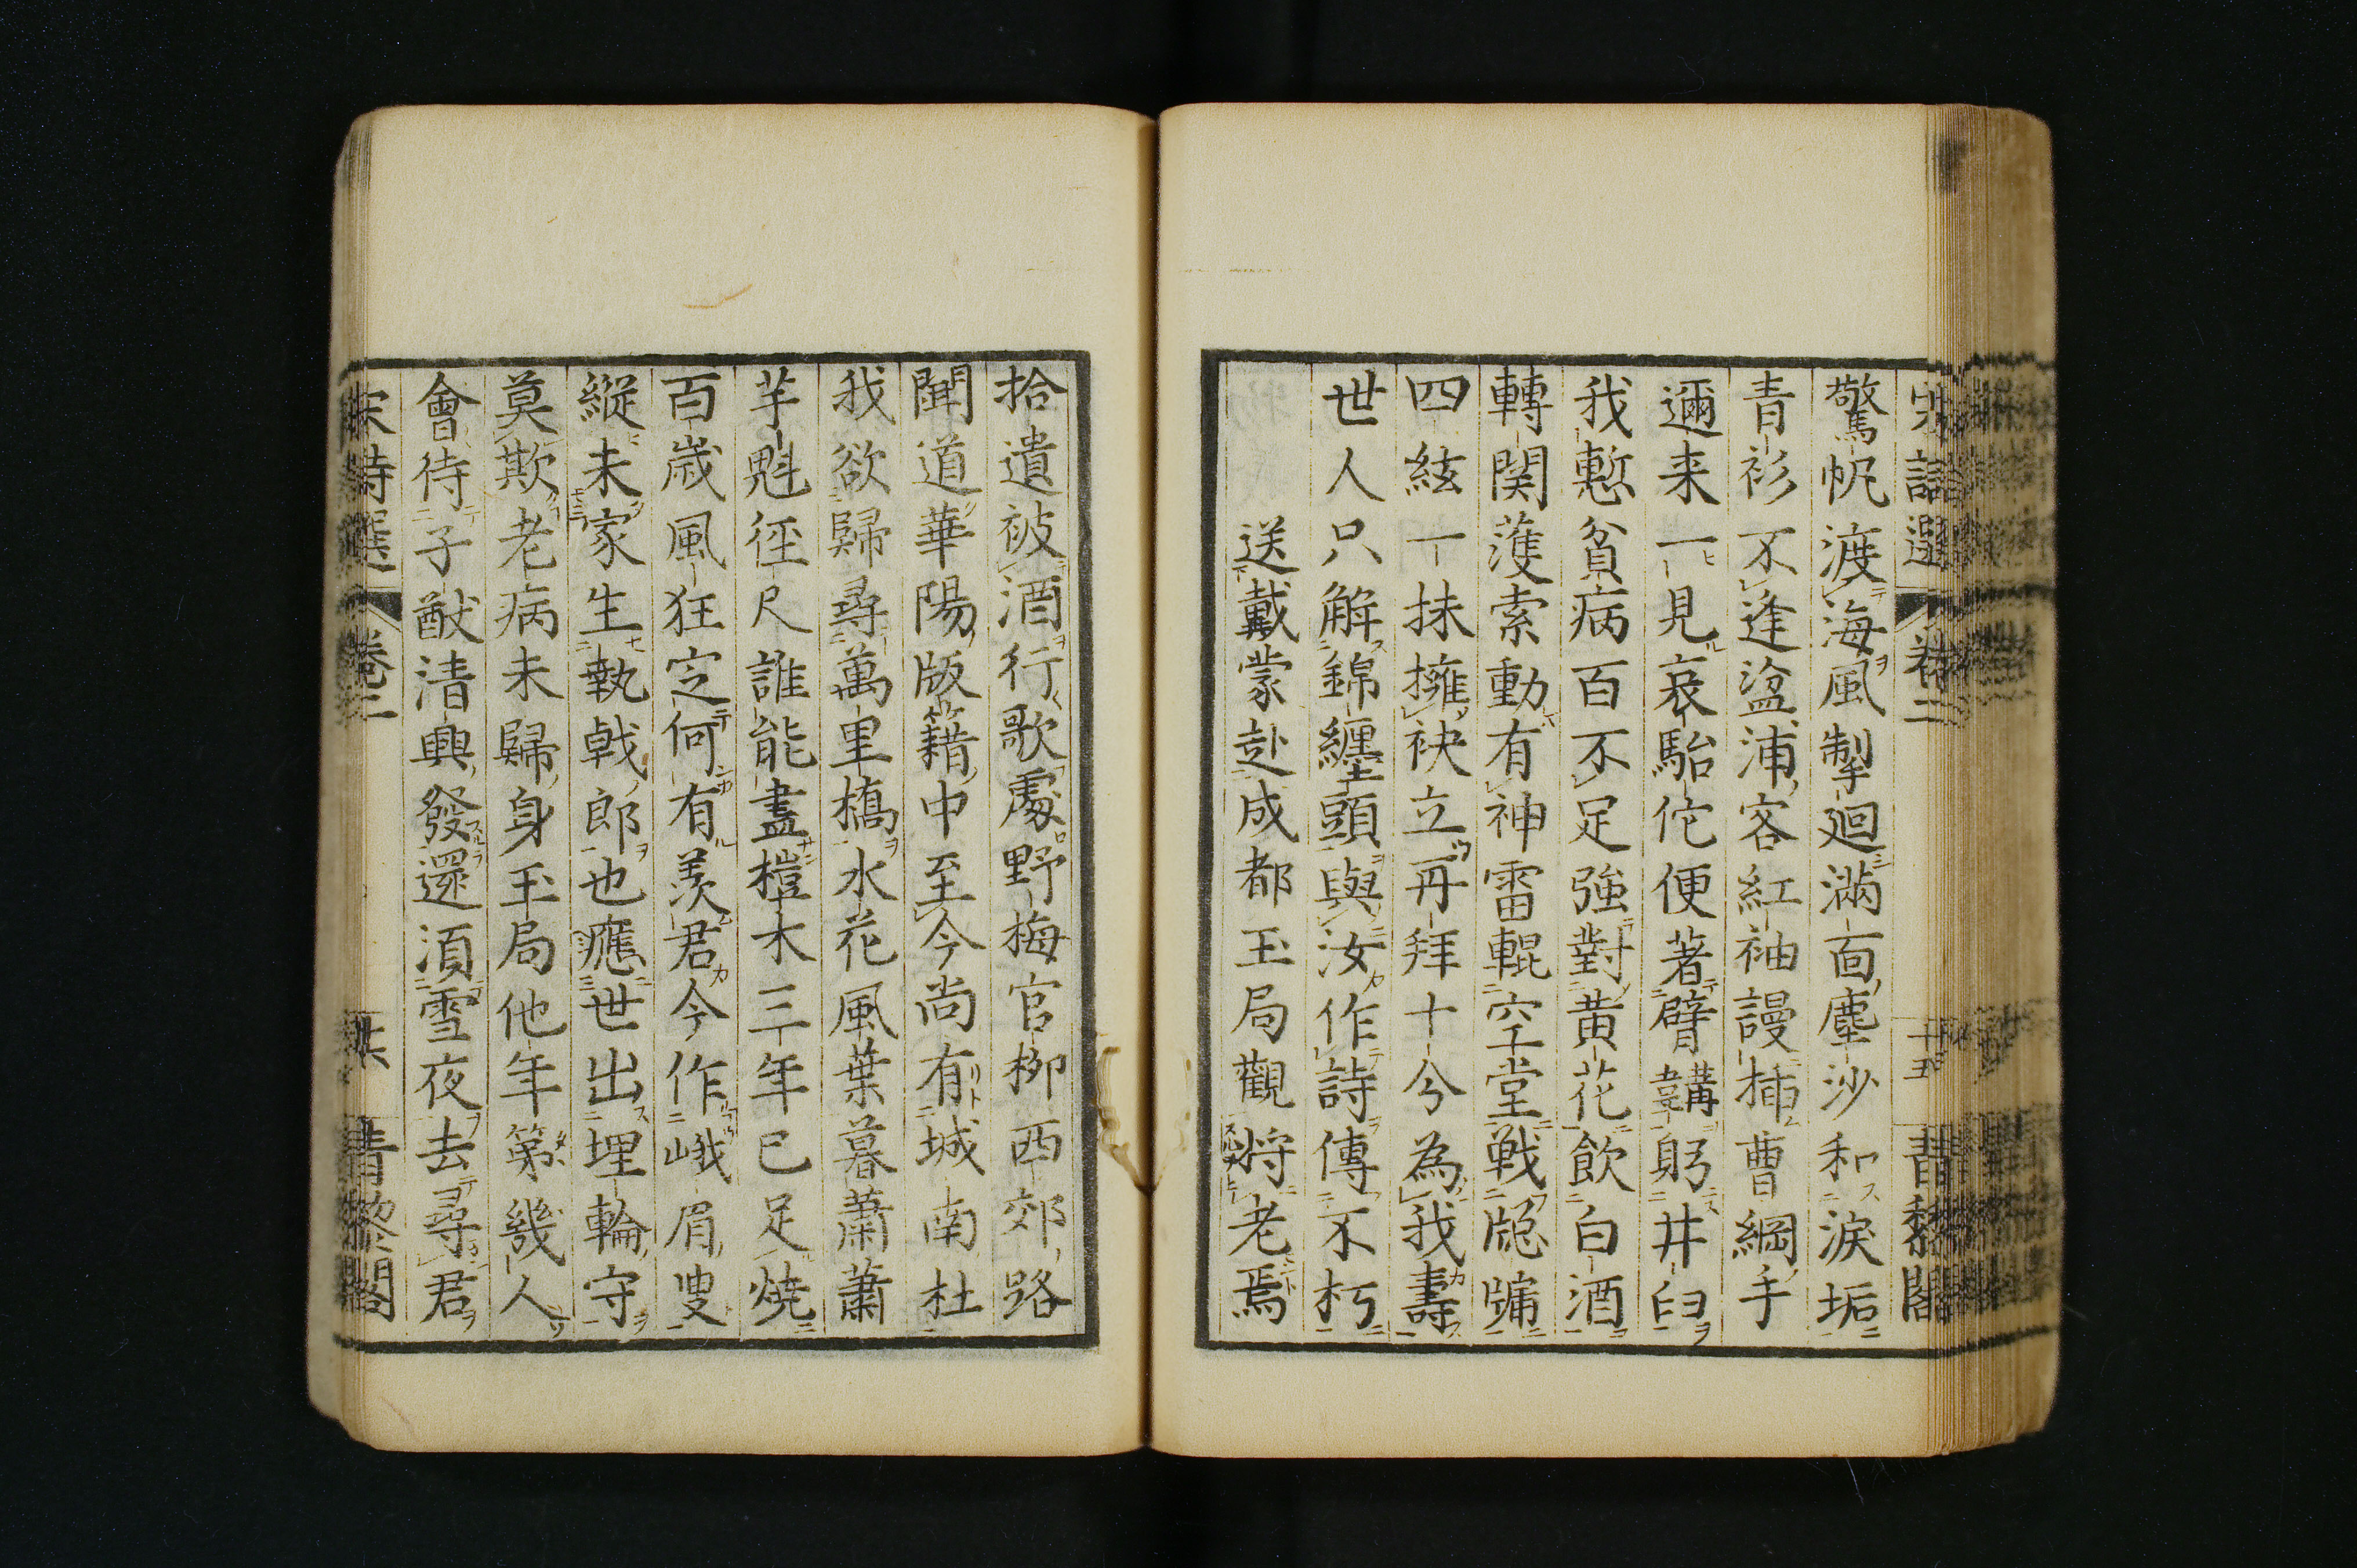 宋詩選 卷二 廿五 青藜閣
驚帆渡海風掣廻滿面塵沙和淚垢
青衫不逢湓浦客紅袖謾揷曹綱手
邇来一見哀駘佗便著臂韝躬井臼
我慙貧病百不足強對黄花飲白酒
轉関濩索動有神雷輥空堂戦窓牖
四絃一抹擁袂立再拜十分為我壽
世人只解錦纏頭與汝作詩傳不朽
送戴蒙赴成都玉局觀将老焉
拾遺被酒行歌處野梅官栁西郊路
聞道華陽版籍中至今尚有城南杜
我欲歸尋萬里橋水花風葉暮蕭蕭
芋魁徑尺誰能盡榿木三年已足焼
百歳風狂定何有羨君今作峨眉叟
縱未家生執戟郎也應世出埋輪守
莫欺老病未歸身玉局他年第幾人
會待子猷清興發還須雪夜去尋君
宋詩選 卷二 廿六 青藜閣